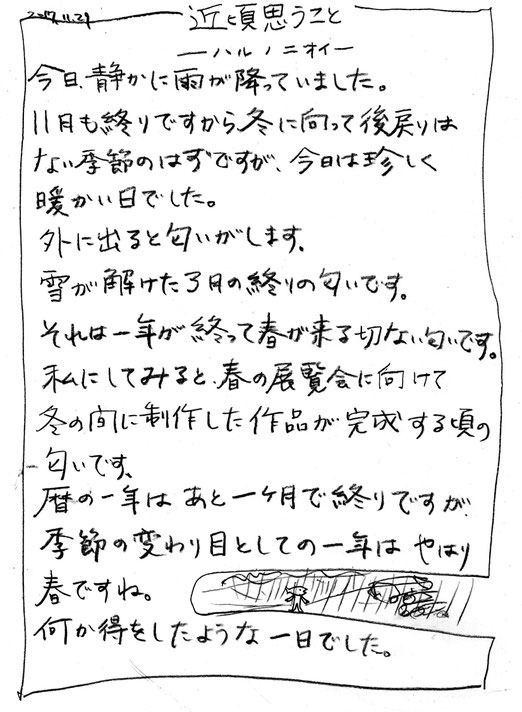 2017.11.29
近頃思うこと
―ハルノニオイ―
今日、静かに雨が降っていました。
11月も終りですから、冬に向って後戻りは
ない季節のはずですが、今日は珍しく
暖かい日でした。
外に出ると匂いがします。
雪が解けた3月の終りの匂いです。
それは一年が終って春が来る切ない匂いです。
私にしてみると、春の展覧会に向けて
冬の間に制作した作品が完成する頃の
匂いです。
暦の一年はあと一ヶ月で終りですが、
季節の変わり目としての一年はやはり
春ですね。
何か得をしたような一日でした。